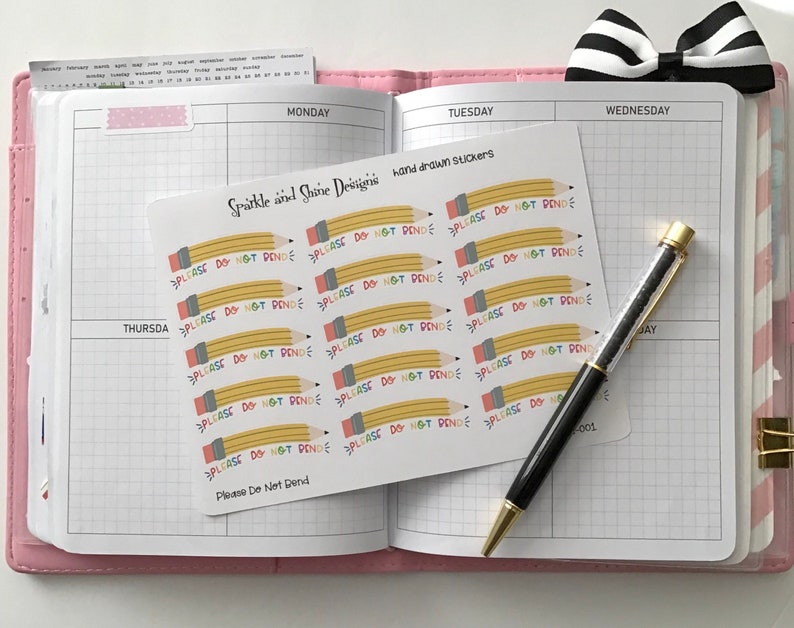 january february march april may june july august september october november december
monday tuesday wednesday thursday friday saturday sunday
MONDAY
TUESDAY
WEDNESDAY
Sparkle and Shine Designs
hand drawn stickers
PLEASE DO NOT BEND
PLEASE DO NOT BEND
PLEASE DO NOT BEND
PLEASE DO NOT BEND
PLEASE DO NOT BEND
PLEASE DO NOT BEND
PLEASE DO NOT BEND
PLEASE DO NOT BEND
PLEASE DO NOT BEND
PLEASE DO NOT BEND
PLEASE DO NOT BEND
PLEASE DO NOT BEND
PLEASE DO NOT BEND
PLEASE DO NOT BEND
PLEASE DO NOT BEND
THURSDA
DAY
-001
Please Do Not Bend